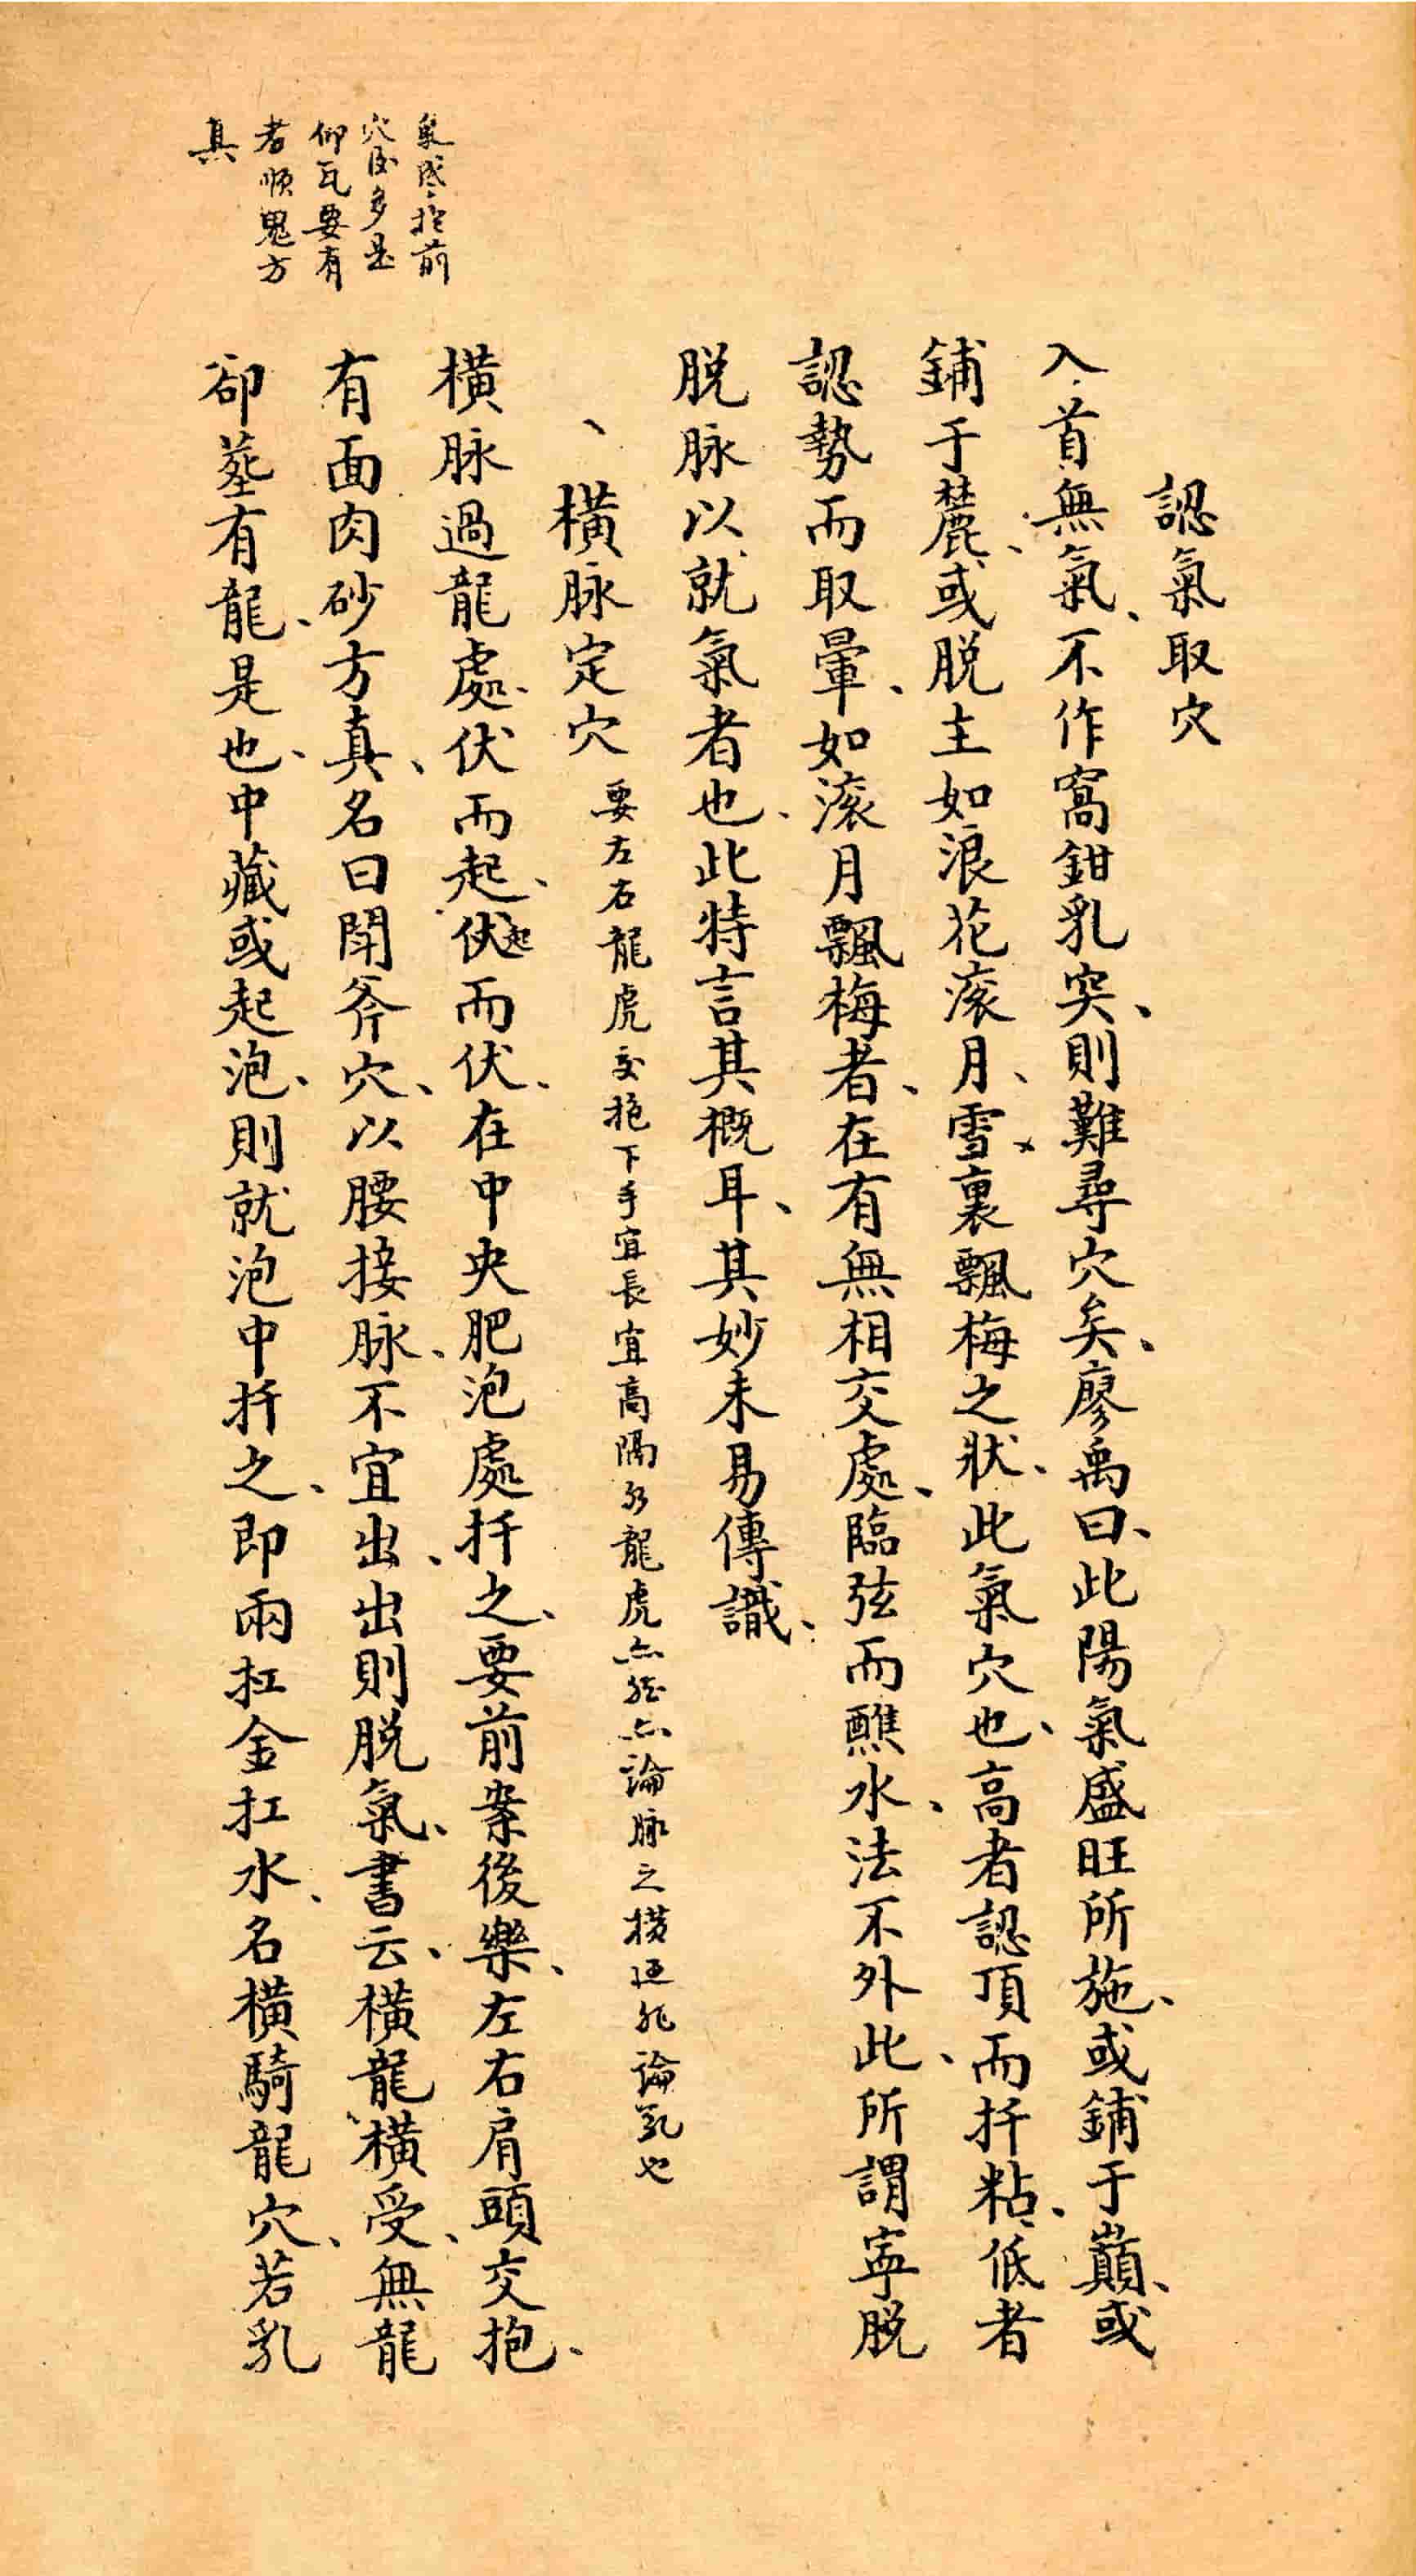 認氣取穴
入首無氣、不作窩鉗乳突、則難尋穴矣、廖禹曰、此陽氣盛旺所施、或鋪于巔、或
鋪于麓、或脱主如浪花滚月、雪裏飄梅之狀、此氣穴也、高者認頂而扦粘、低者
認勢而取暈、如滚月飄梅者、在有無相交處、臨弦而醮水、法不外此、所謂寜脱
脱脉以就氣者也、此特言其概耳、其妙未易傳識、
、横脉定穴 要左右龍虎交抱下手宜長宜高隔水龍虎亦能亦論脉之横逆非論氣也
横脉過龍處、伏而起、伏起而伏、在中央肥泡處扦之、要前案後樂、左右肩頭交抱、
有面肉砂方真、名曰開斧穴、以腰接脉、不宜出、出則脱氣、書云、横龍横受、無龍
卻塟有龍、是也、中藏或起泡、則就泡中扦之、即兩扛金扛水、名横騎龍穴、若乳
抱前
穴後多是
仰瓦要有
者順鬼方
真